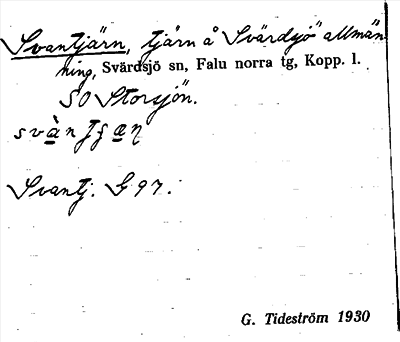 Svantjärn, tjärn å Svärdsjö allmän
ning, Svärdsjö sn, Falu norra tg, Kopp. l.
SO Storsjön.
Svantj. G 97.
G. Tideström 1930